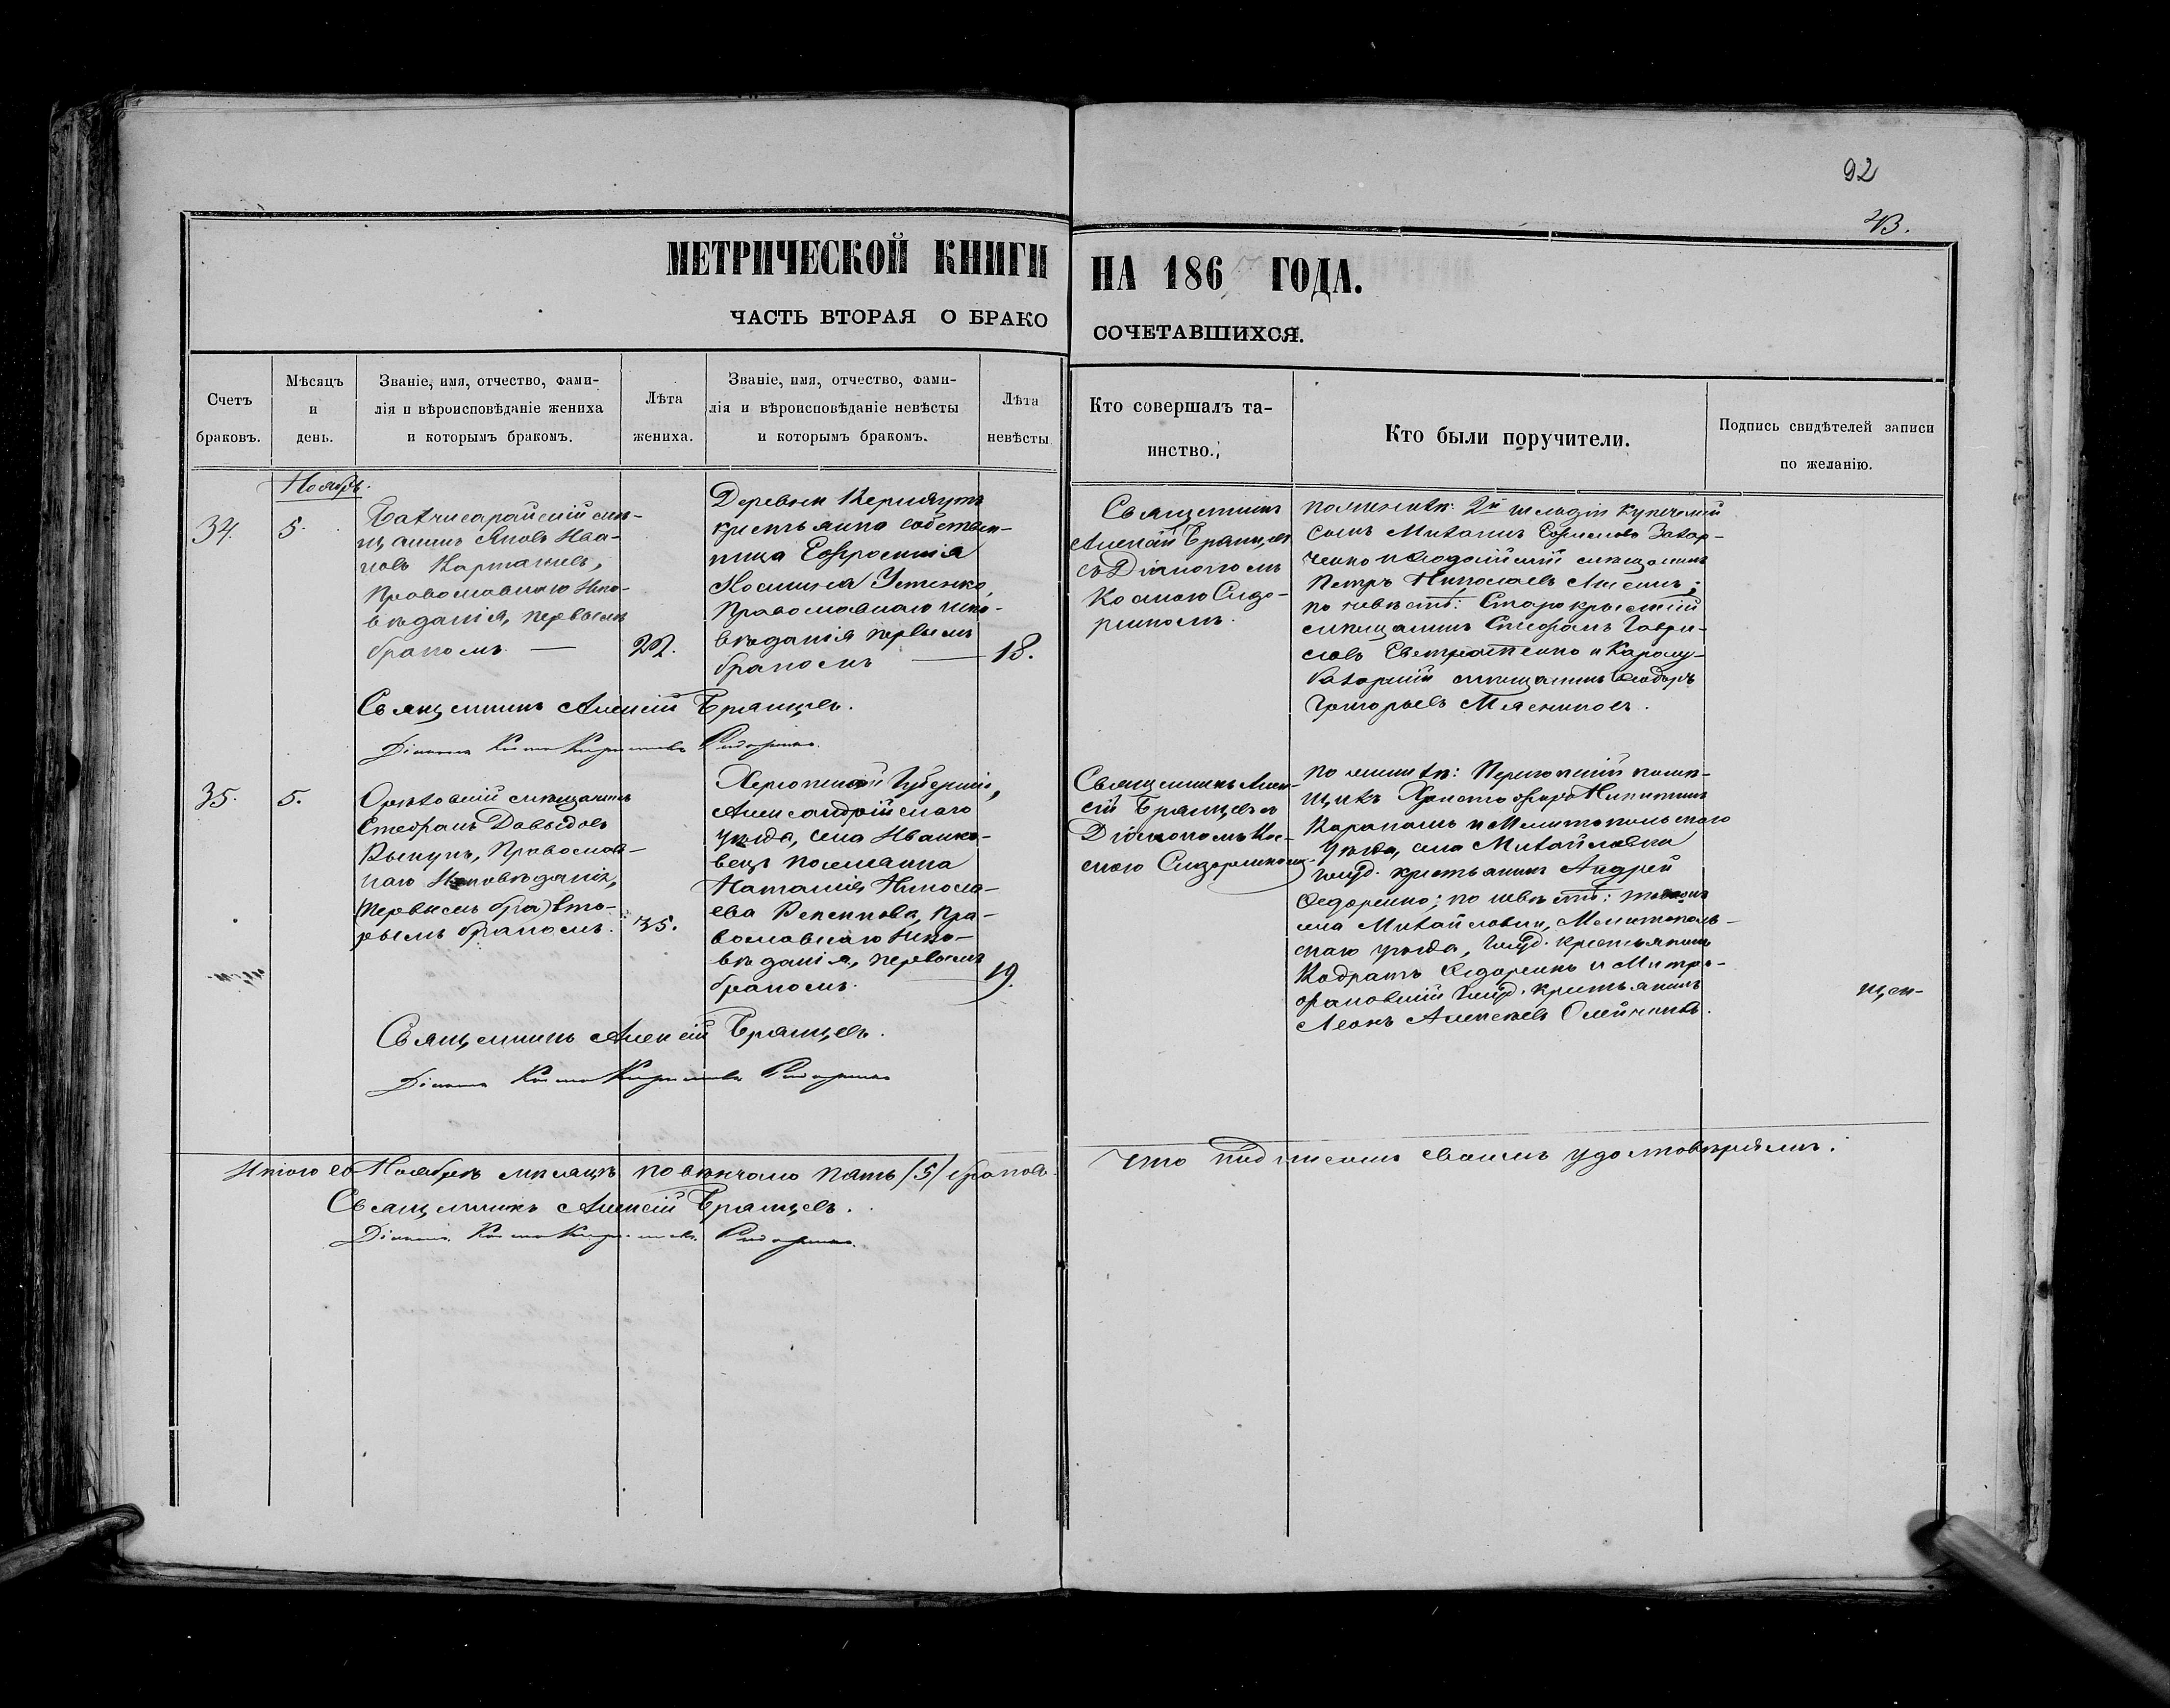 92
43.
МЕТРИЧЕСКОЙ КНИГИ НА 186 ГОДА.
ЧАСТЬ ВТОРАЯ О БРАКОСОЧЕТАВШИХСЯ.
Счетъ браковъ.
Мѣсяцъ и день.
Званіе, имя, отчество, фами-
лія и вѣроисповѣданіе жениха
и которымъ бракомъ.
Лѣта
жениха.
Званіе, имя, отчество, фами-
лія и вѣроисповѣданіе невѣсты
и которымъ бракомъ.
Лѣта
невѣсты
Кто совершалъ та-
инство.
Кто были поручители.
Подпись свидѣтелей записи
по желанію.
Ноябрь.
34.
5.
Бахчисарайскій мѣ-
щанинъ Яковъ Ива-
новъ
Православнаго испо-
вѣданія, первымъ
бракомъ —
22.
Деревни
крестьянка собствен-
ница Евфросинія
Устенко,
Православнаго испо-
вѣданія первымъ
бракомъ —
18.
Священникъ
Алексій Бранцевъ
съ Діакономъ
Космою Сидо-
ренкомъ.
по женихѣ: 2й гильдіи купеческій
сынъ Михаилъ Захар-
ченко и Ѳеодосійскій мѣщанинъ
Петръ Николаевъ
по невѣстѣ: Старокрымскій
мѣщанинъ Стефанъ Гаври-
ловъ и Карасу-
базарскій мѣщанинъ Ѳеодоръ
Григорьевъ Мясниковъ.
Священникъ Алексій Бранцевъ.
Діаконъ Косма Сидоренко.
35.
5.
Орѣховскій мѣщанинъ
Стефанъ Давыдовъ
Православ-
наго исповѣданія,
(первымъ бра) вто-
рымъ бракомъ.
35.
Херсонской Губерніи,
Александрійскаго
уѣзда, села Иванко-
вецъ поселянка
Наталія Никола-
ева Пра-
вославнаго испо-
вѣданія, первымъ
бракомъ. —
19.
Священникъ Алек-
сій Бранцевъ и
Діакономъ Кос-
мою Сидоренкомъ.
по женихѣ: Перекопскій помѣ-
щикъ Христофоръ Никитинъ
и Мелитопольскаго
уѣзда, села Михайловки
госуд. крестьянинъ Андрей
Ѳедоренко; по невѣстѣ:
села Михайловки, Мелитополь-
скаго уѣзда, госуд. крестьянинъ
Кодратъ Ѳедоренко и Митро-
фановскій госуд. крестьянинъ
Леонъ Алексѣевъ Олейниковъ.
Священникъ Алексій Бранцевъ.
Діаконъ Косма Сидоренко
Итого въ Ноябрѣ мѣсяцѣ повѣнчано пять /5/ браковъ.
Что подписомъ своимъ удостовѣряемъ:
Священникъ Алексій Бранцевъ.
Діаконъ Косма Сидоренко.